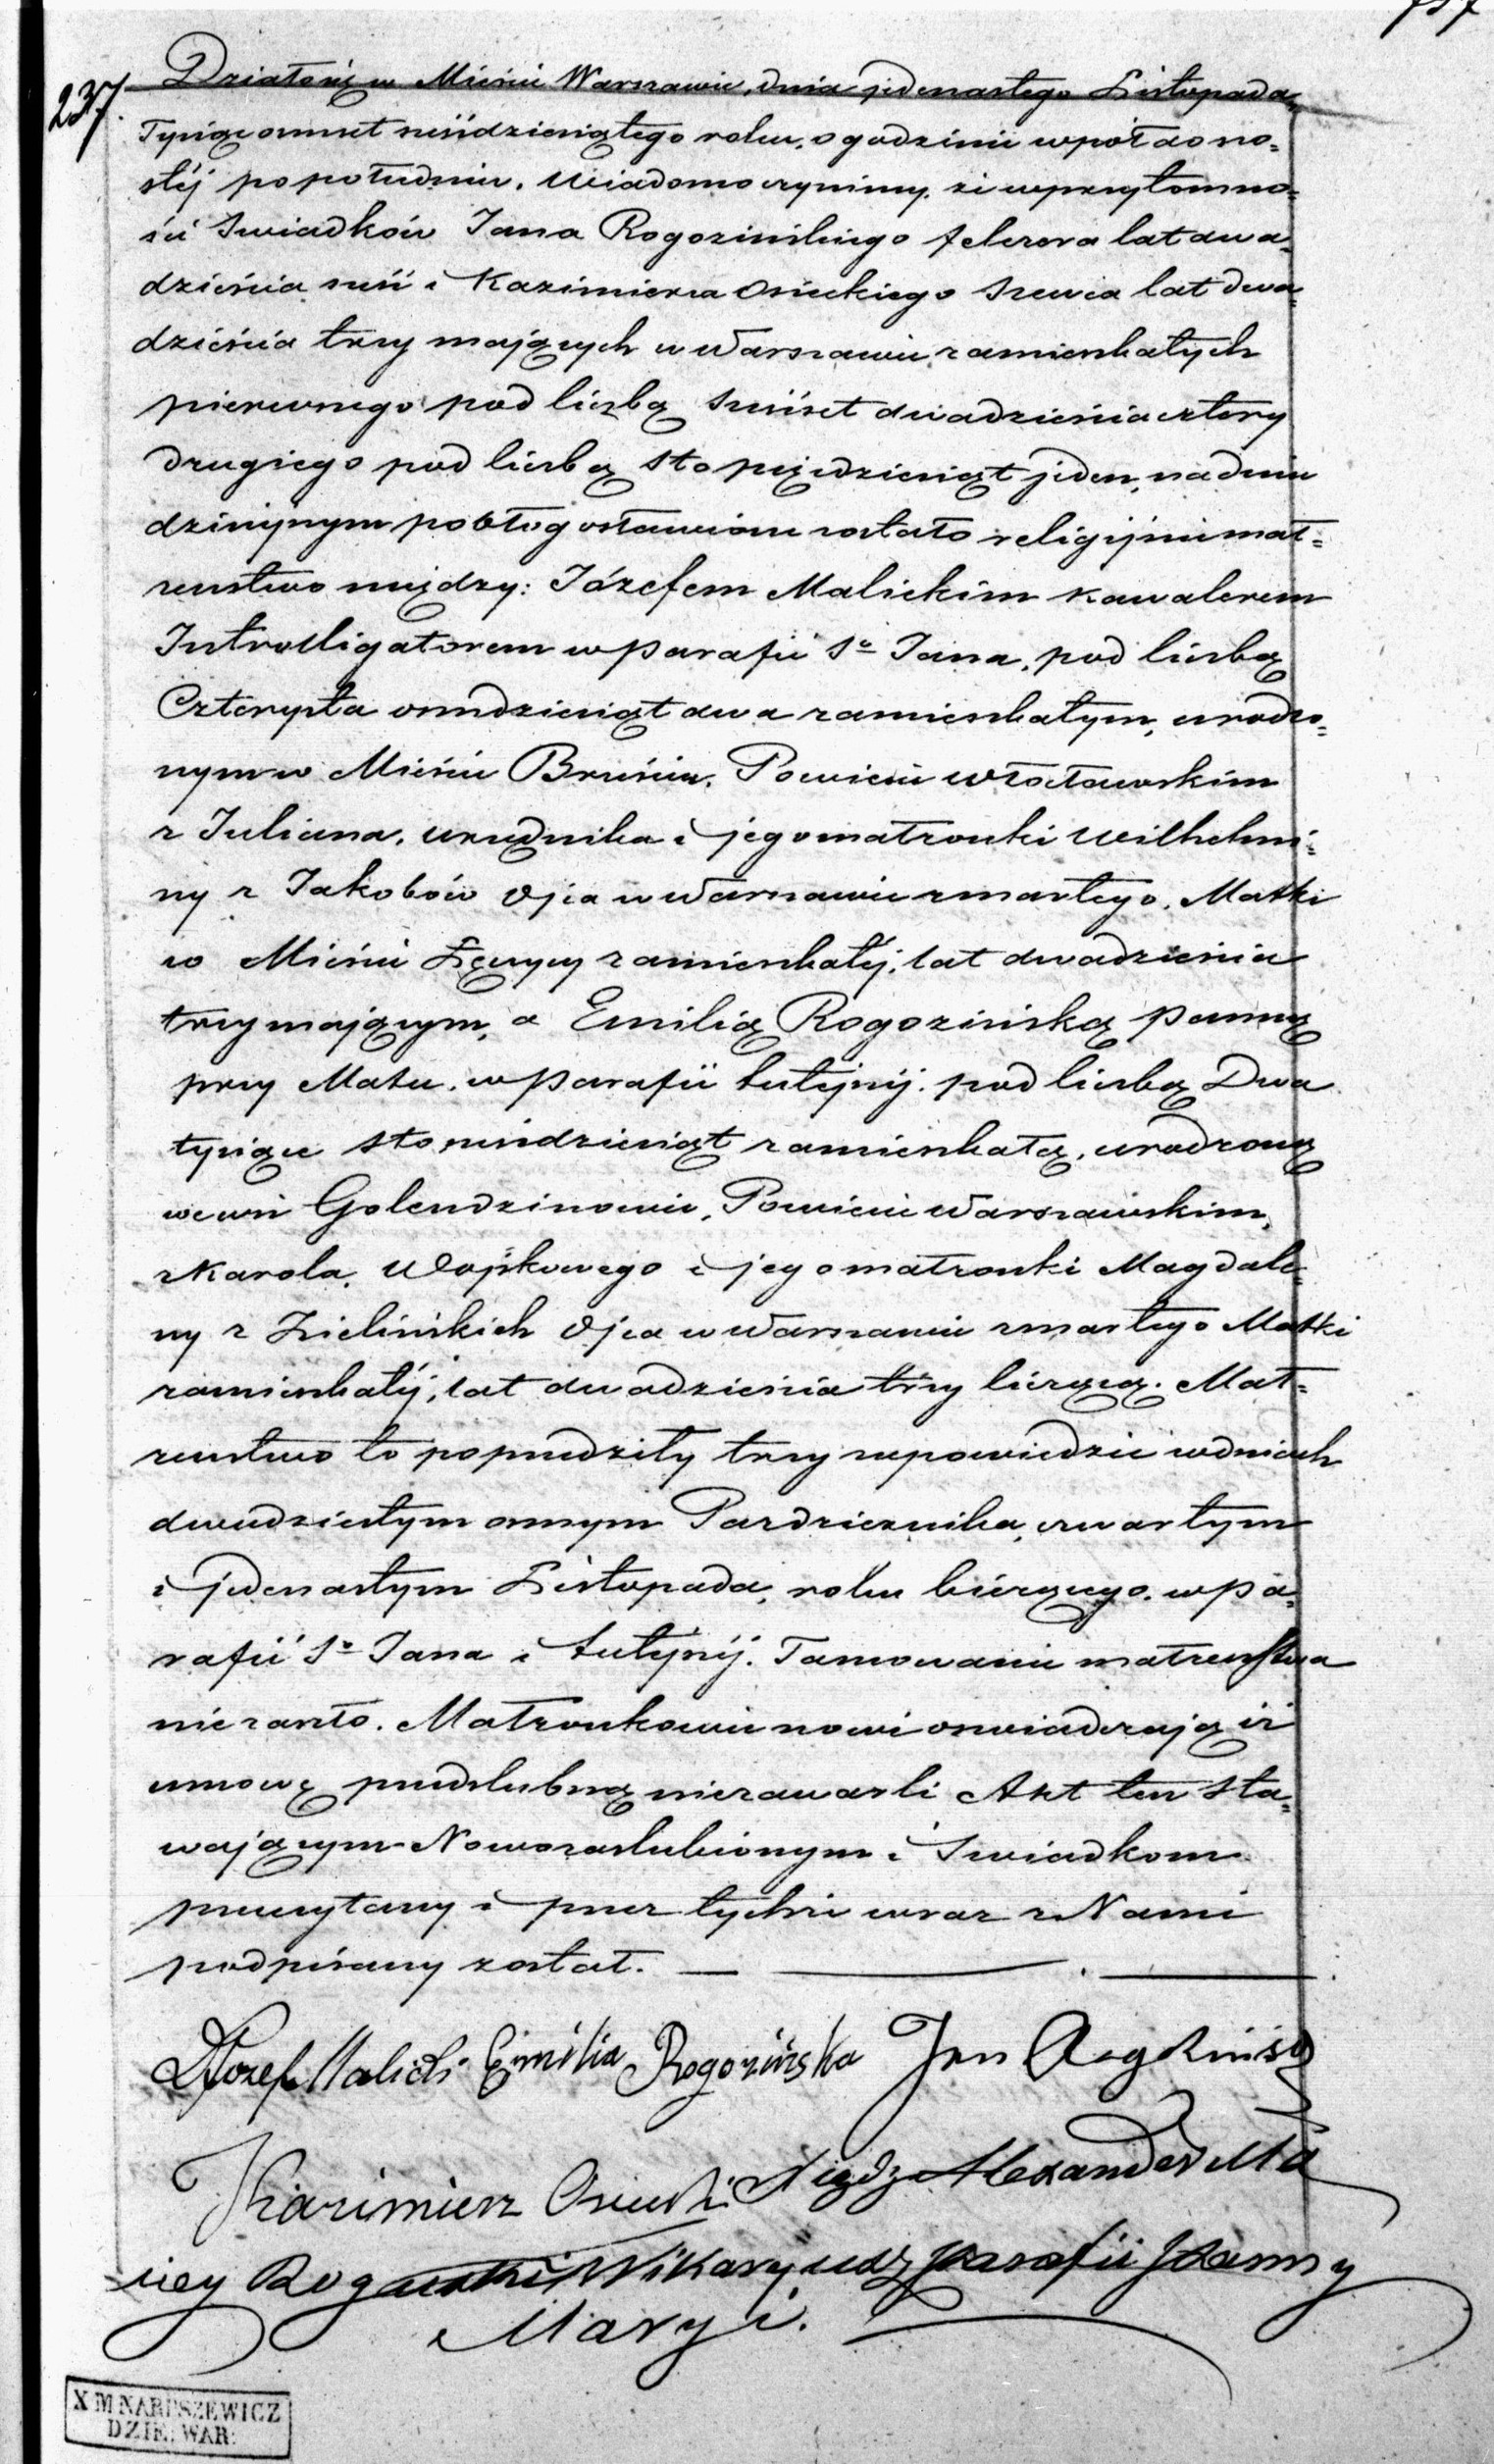 237.
Działo się w Mieście Warszawie, dnia jedenastego Listopada,
Tysiąc osmset sześćdziesiątego roku, o godzinie wpół do szo=
stéj po południu. Wiadomo czynimy, że w przytomno=
ści Swiadków Jana Rogozińskiego felczera lat dwa=
dzieścia sześć i Kazimierza Osieckiego Szewca lat dwa=
dzieścia trzy mających w Warszawie zamieszkałych
pierwszego pod liczbą sześćset dwadzieścia cztery
drugiego pod liczbą sto pięćdziesiąt jeden, na dniu
dzisiejszym pobłogosławione zostało religijne mał=
żeństwo między: Józefem Malickim Kawalerem
Introlligatorem w Parafii Sº Jana, pod liczbą
Czterysta osmdziesiąt dwa zamieszkałym, urodzo=
nym w Mieście Brześciu, Powiecie Włocławskim
z Juliana, urzędnika i jego małżonki Wilhelmi=
ny z Jakobów Ojca w Warszawie zmarłego, Matki
w Mieście Łęczycy zamieszkałéj, lat dwadzieścia
trzy mającym, a Emilią Rogozińską Panną
przy Matce, w Parafii tutejszéj, pod liczbą Dwa
tysiące sto sześćdziesiąt zamieszkałą, urodzoną
we wsi Golendzinowie, Powiecie Warszawskim,
z Karola, Wojskowego i jego małżonki Magdale=
ny z Zielińskich Ojca w Warszawie zmarłego Matki
zamieszkałéj, lat dwadzieścia trzy liczącą. Mał=
żeństwo to poprzedziły trzy zapowiedzie w dniach
dwudziestym osmym Pazdziernika, czwartym
i jedenastym Listopada, roku bieżącego, w Pa=
rafii Sº Jana i tutejszéj. Tamowanie małżeństwa
nie zaszło. Małżonkowie nowi oswiadczają iż
umowę przedslubną nie zawarli Akt ten sta=
wającym Nowozaslubionym i Swiadkom
przeczytany i przez tychże wraz z Nami
podpisany został.
Józef Malicki Emilia Rogozińska Jan Rogoziński
Kazimierz Osiecki Xiądz Alexander Ma
ciey Wikaryusz Parafii Panny
Maryi.
X M NARUSZEWICZ
DZIE: WAR: